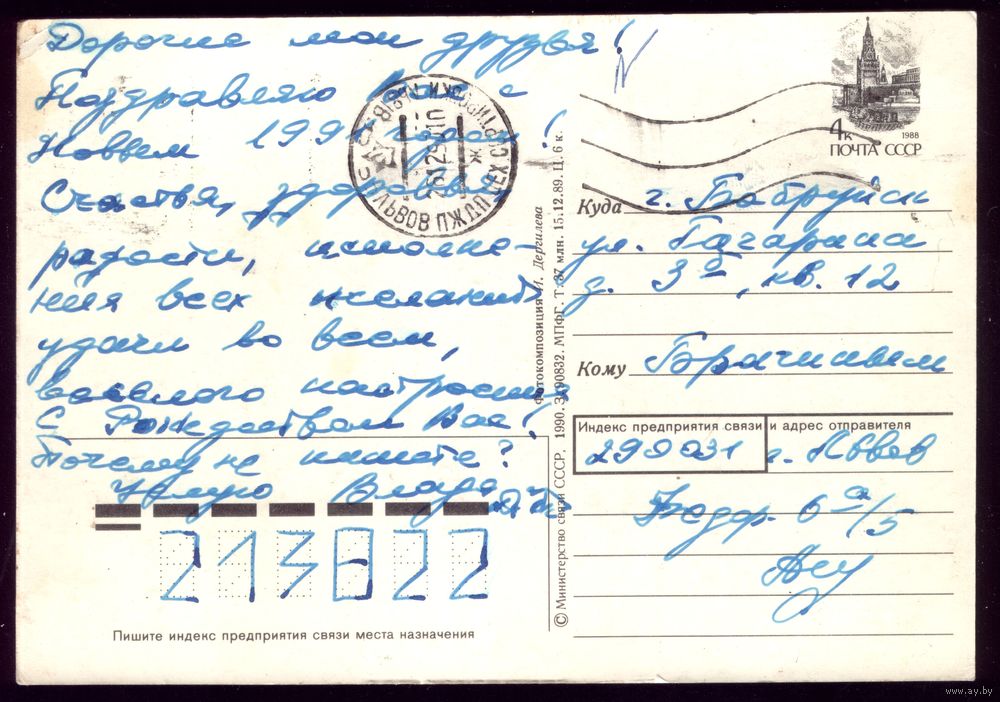 Дорогие мои друзья!
Поздравляю Вас с
Новым 199 годом!
Счастья, здоровья,
радости, исполне-
ния всех желаний,
удачи во всем,
веселого настроения
С Рождеством Вас!
Почему не пишете?
Целую Влада
4к
1988
ПОЧТА СССР
ЛЬВОВ ПЖДП
Куда г. Бабруйск
ул. Гагарина
д. 3а, кв. 12
Кому Брагиневем
Индекс предприятия связи и адрес отправителя
290031 г. Львов
Федор. 6а/5
213822
Пишите индекс предприятия связи места назначения
© Министерство связи СССР, 1990. З. 890832. МПФГ. Т. 37 млн. 15.12.89. Ц. 6 к.
Фотокомпозиция И. Дергилева
www.ay.by